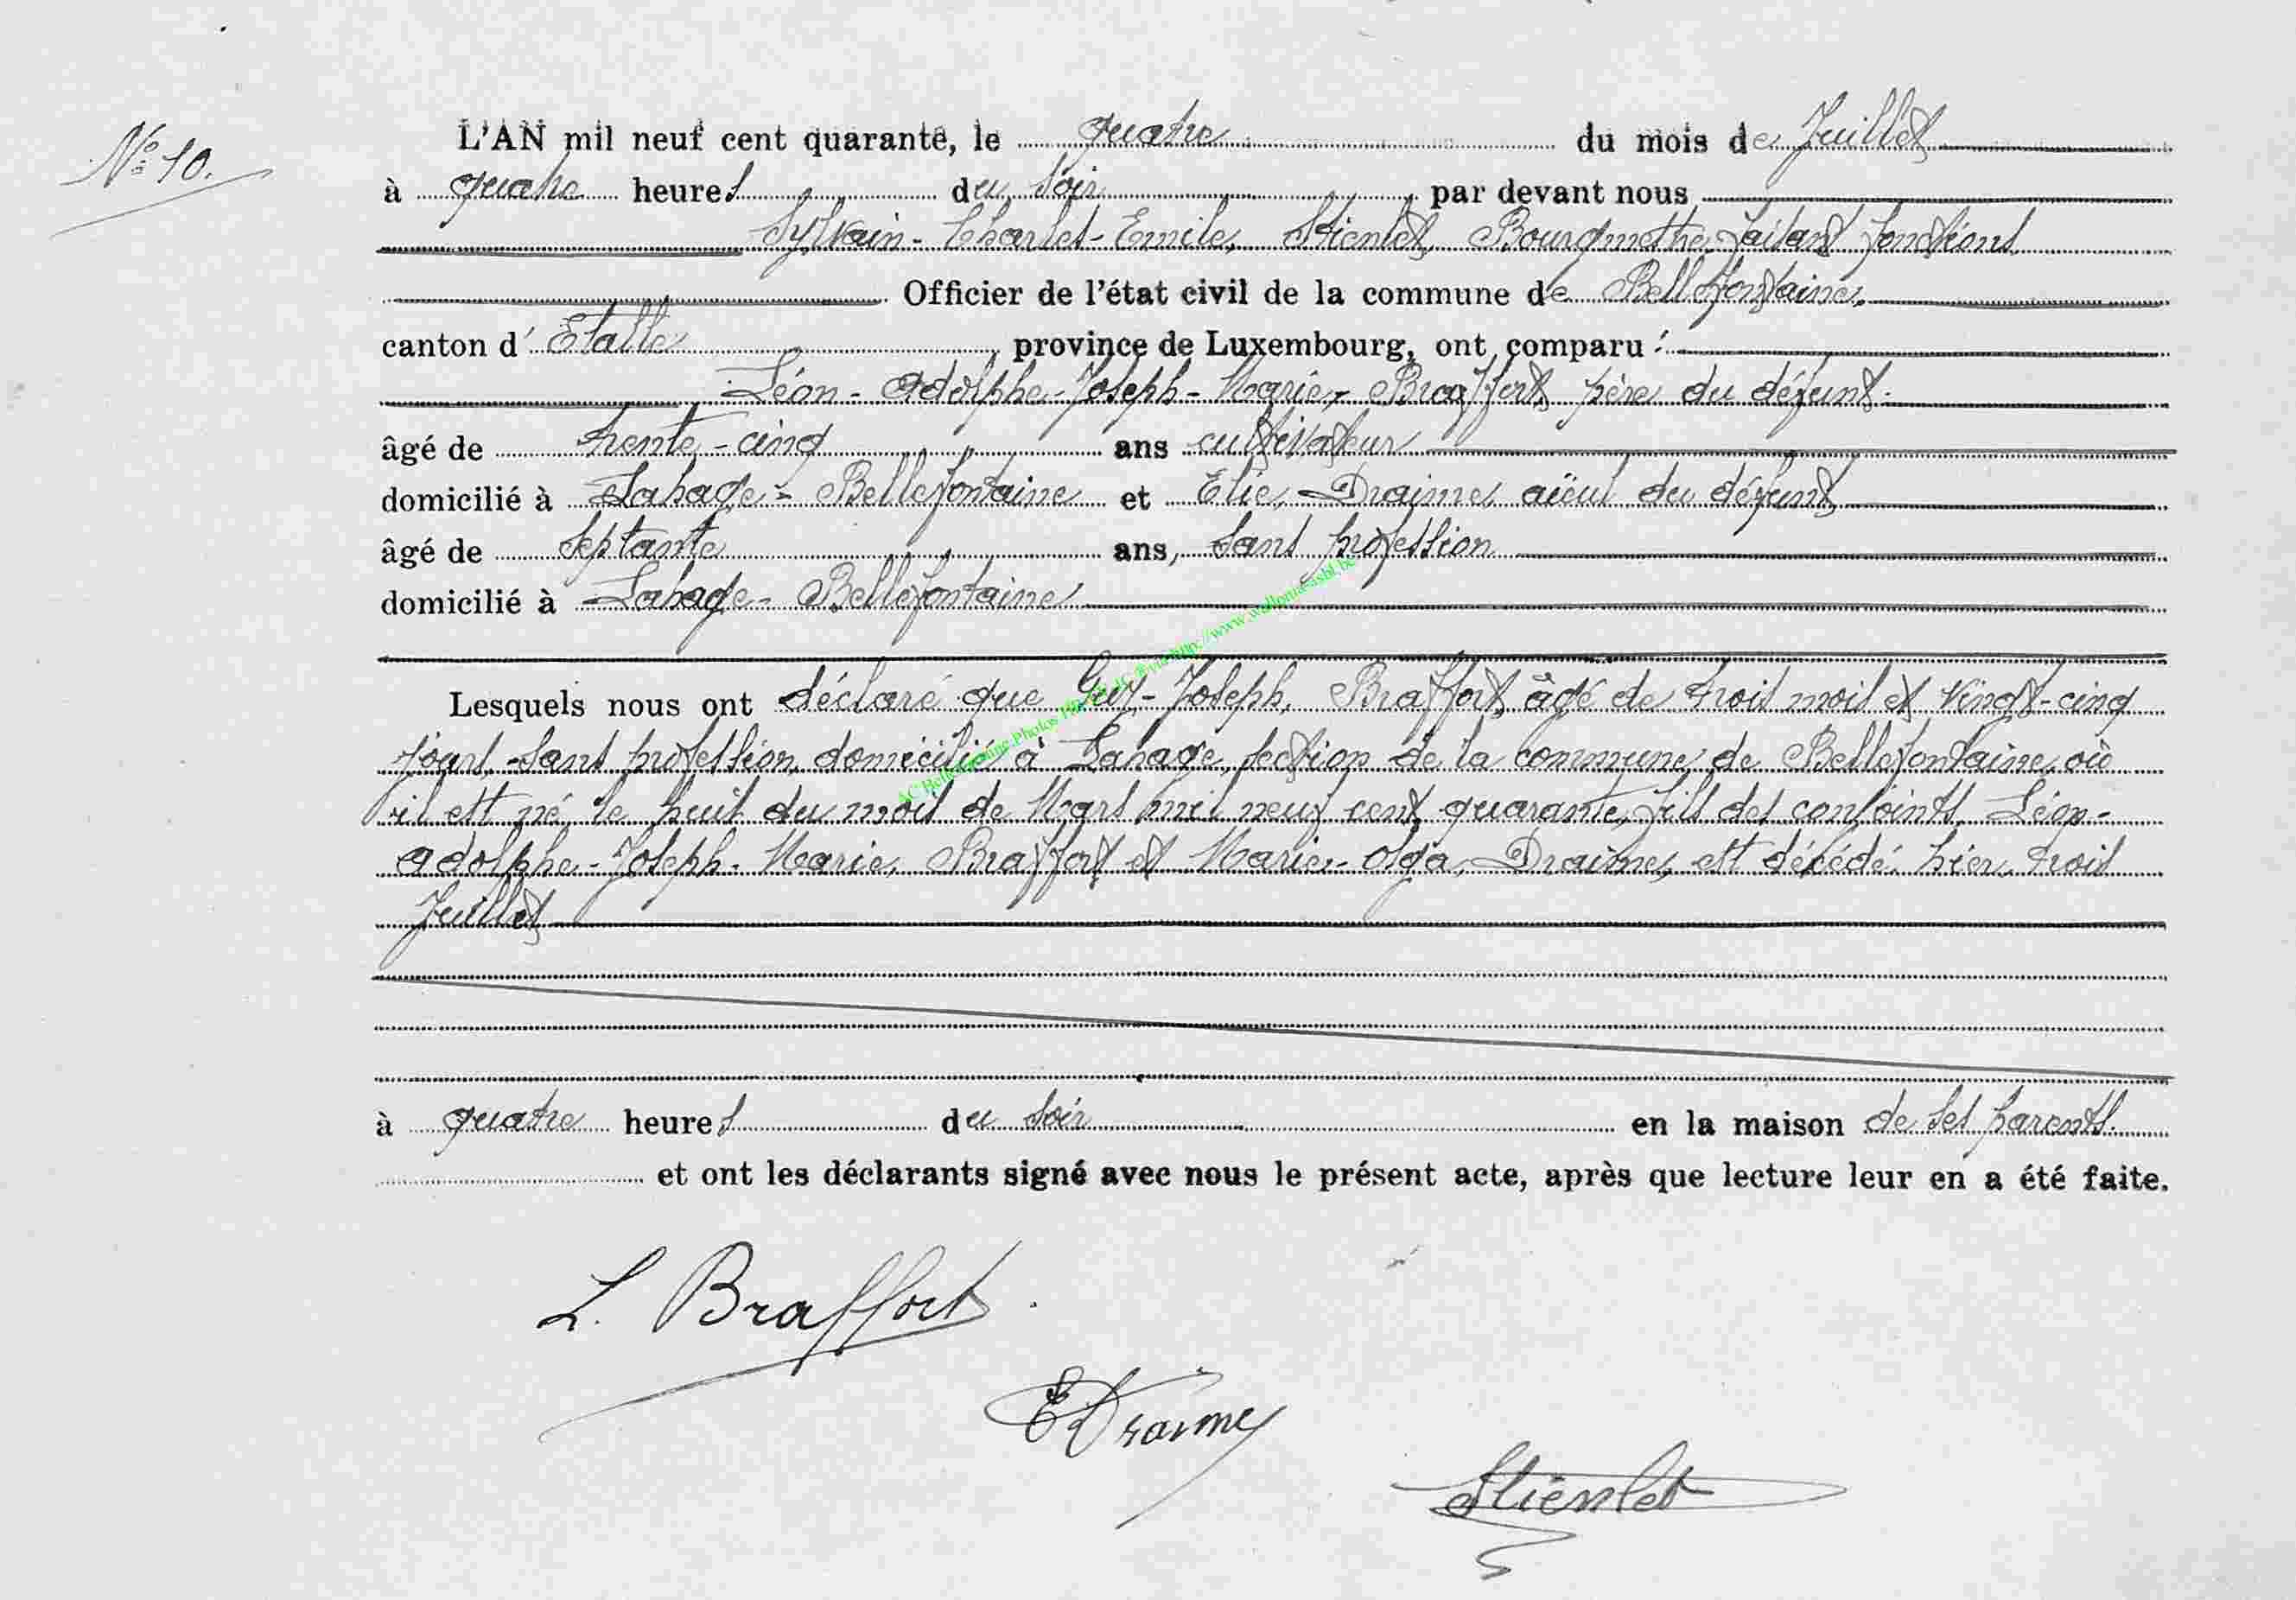 N° 10.
L'AN mil neuf cent quarante, le quatre du mois de Juillet
à quatre heures du soir par devant nous
Sylvain-Charles-Emile, Stienlet, Bourgmestre faisant fonctions
Officier de l'état civil de la commune de Bellefontaine,
canton d'Etalle, province de Luxembourg, ont comparu :
Léon-Adolphe-Joseph-Marie, Braffort, père du défunt
âgé de trente-cinq ans cultivateur
domicilié à Lahage-Bellefontaine et Elie, Draime, aïeul du défunt
âgé de septante ans, sans profession
domicilié à Lahage-Bellefontaine
Lesquels nous ont déclaré que Guy-Joseph, Braffort, âgé de trois mois et vingt-cinq
jours, sans profession, domicilié à Lahage, section de la commune de Bellefontaine, où
il est né le huit du mois de Mars mil neuf cent quarante, fils des conjoints Léon-
Adolphe-Joseph-Marie, Braffort et Marie-Olga, Draime, est décédé hier, trois
Juillet
à quatre heures du soir en la maison de ses parents.
et ont les déclarants signé avec nous le présent acte, après que lecture leur en a été faite.
L. Braffort.
E Draime
Stienlet